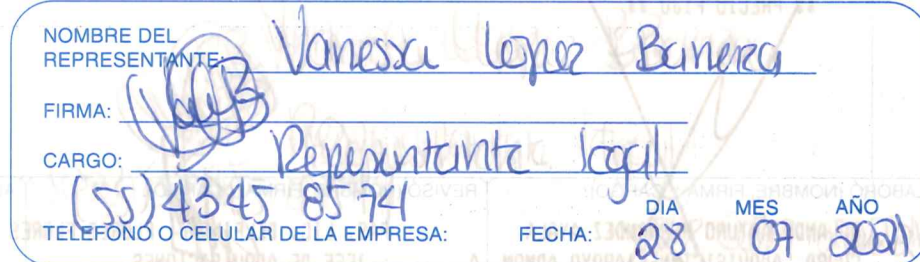 NOMBRE DEL
REPRESENTANTE: Vanessa Lopez Barrera
FIRMA:
CARGO: Representante legal
(55) 4345 8574
TELEFONO O CELULAR DE LA EMPRESA:
FECHA: DIA MES AÑO
28 07 2021